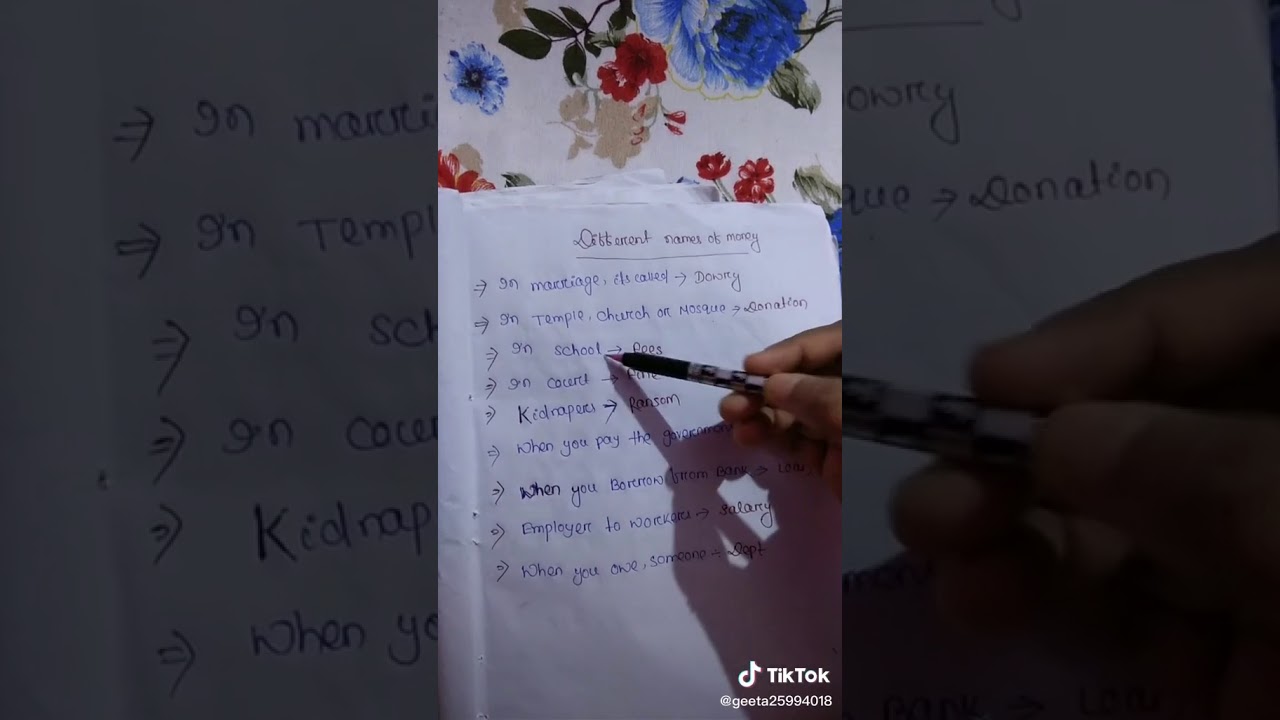 Different names of money
⇒ In marriage, it's called → Dowry
⇒ In Temple, church or Mosque → Donation
⇒ In school → Fees
⇒ In court → Fine
⇒ Kidnapers → Ransom
⇒ When you pay the government
⇒ When you Borrow from Bank → Loan
⇒ Employer to workers → Salary
⇒ When you owe, someone → Dept
TikTok
@geeta25994018